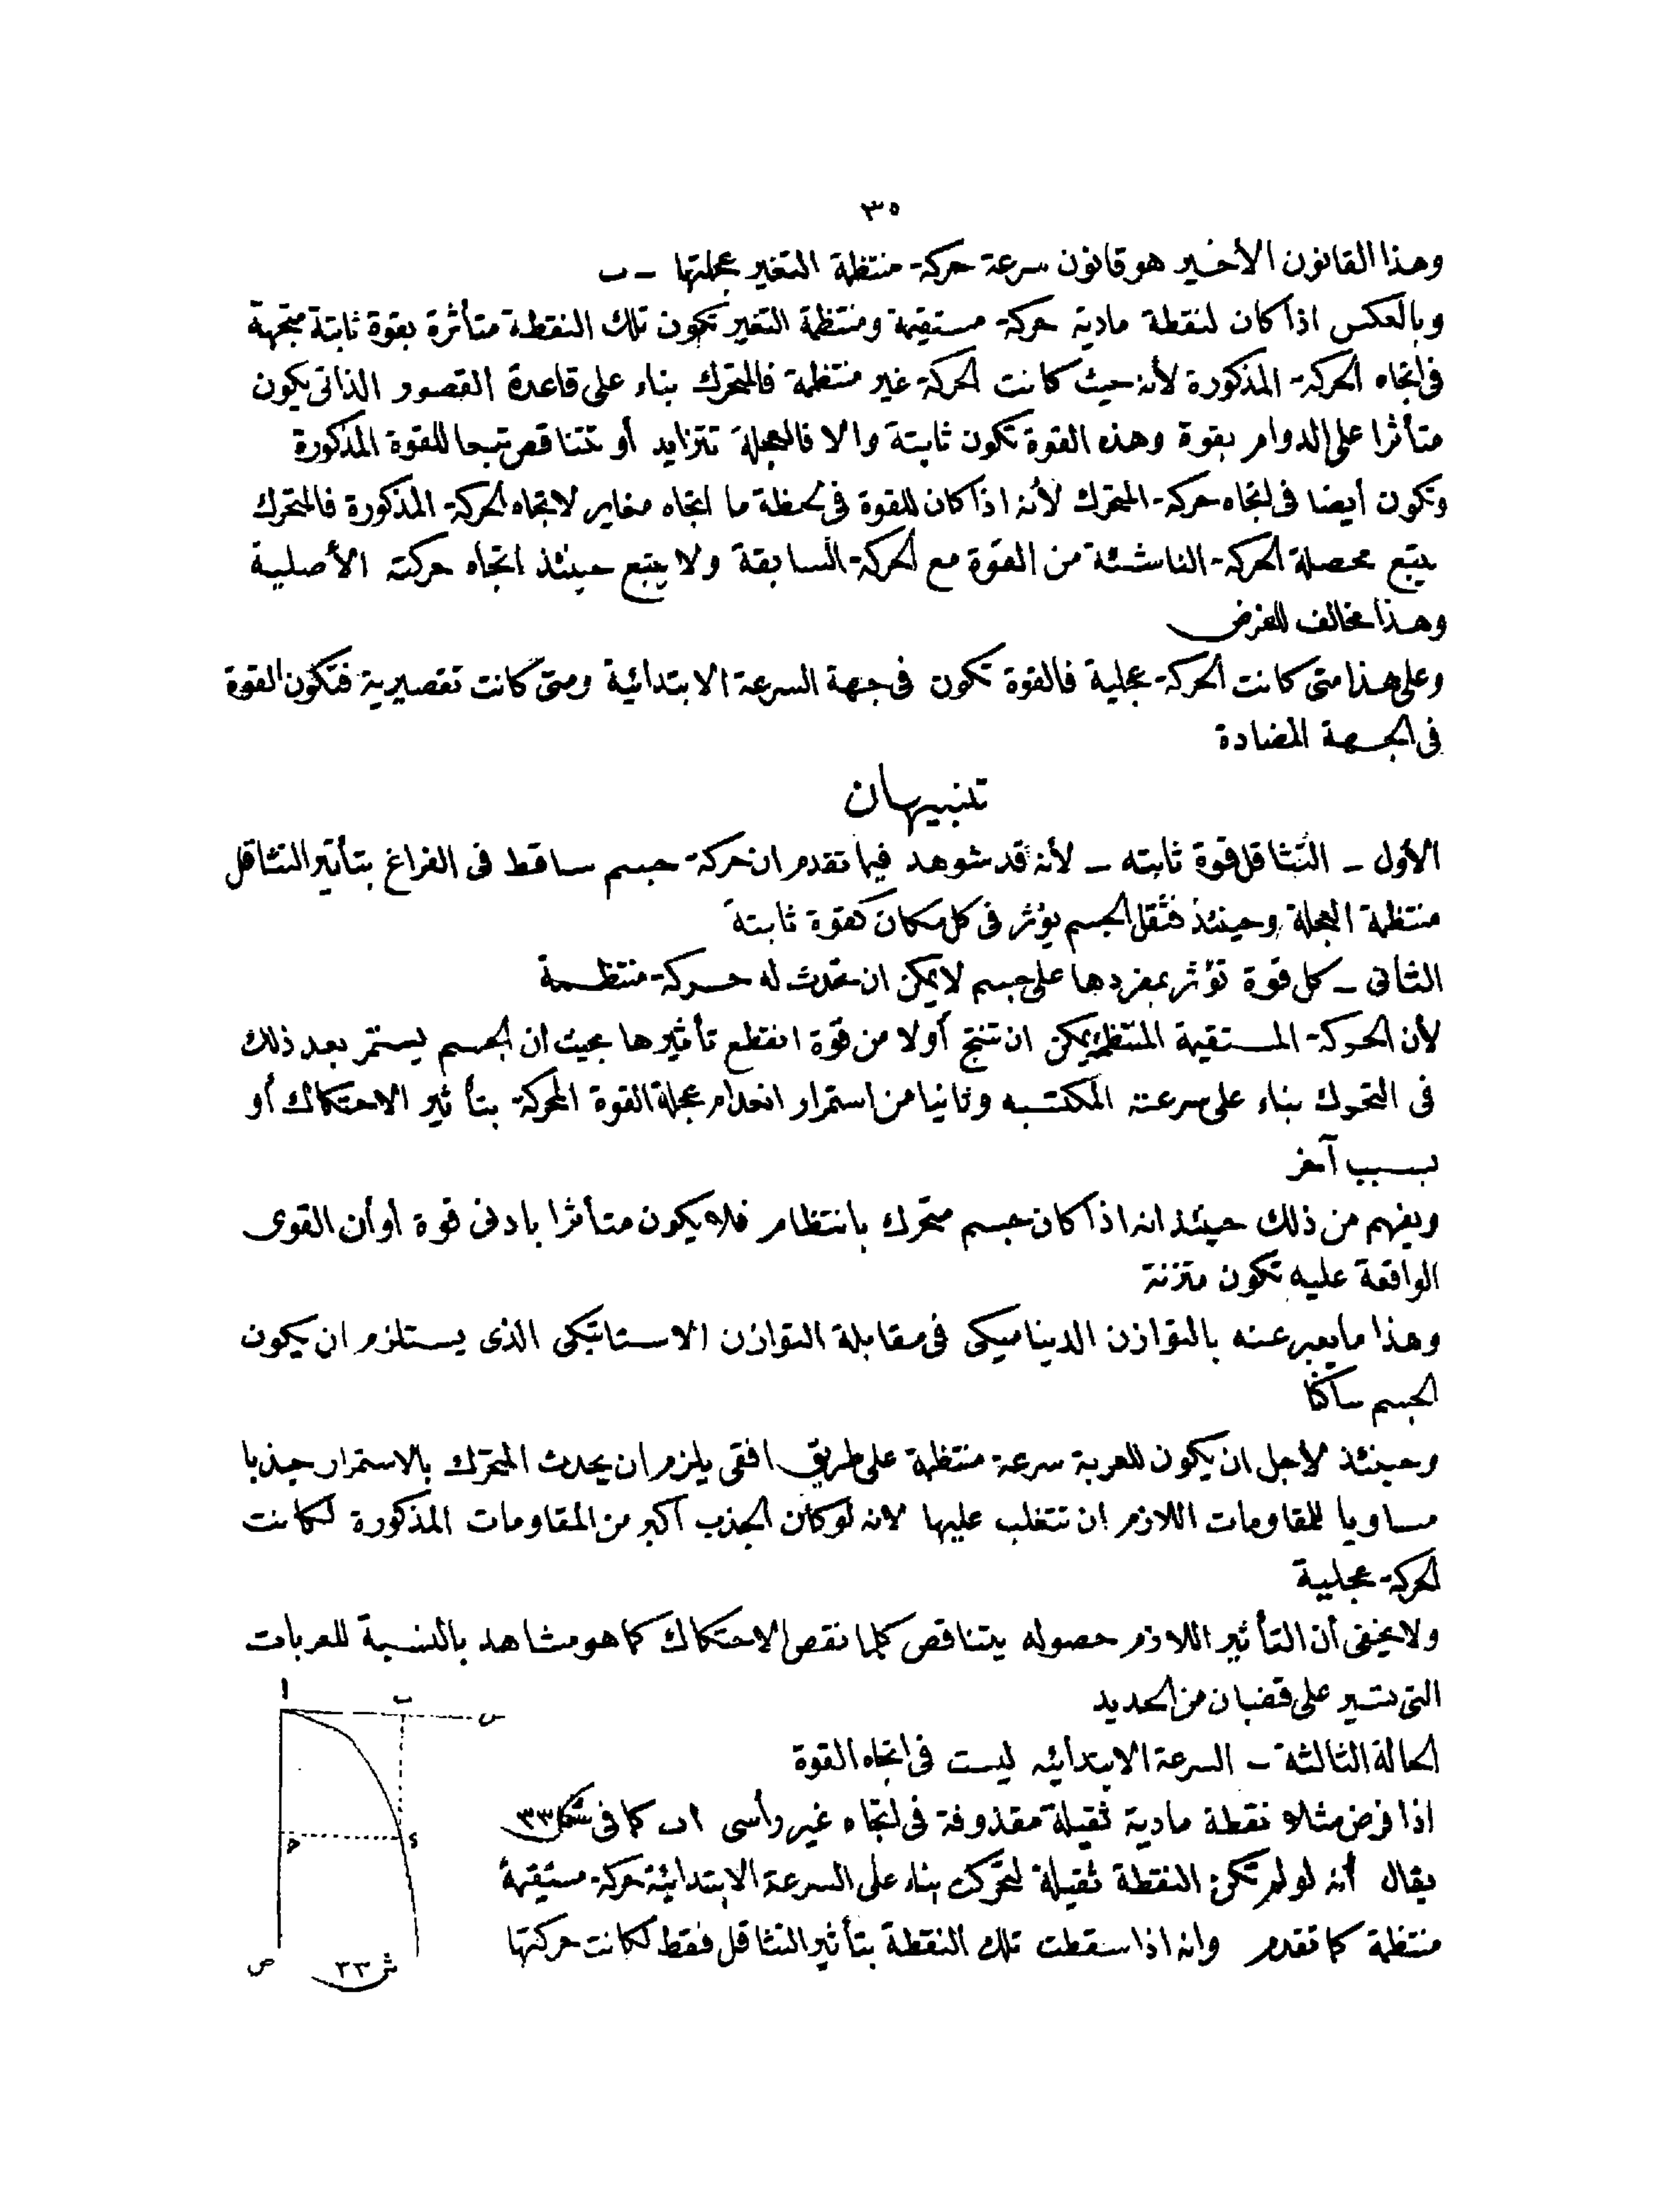 ٣٥
وهذا القانون الأخير هو قانون سرعة حركة منتظمة التغير عجلتها ــ ب
وبالعكس اذا كان لنقطة مادية حركة مستقيمة ومنتظمة التغير تكون تلك النقطة متأثرة بقوة ثابتة متجهة
فى اتجاه الحركة المذكورة لأنه حيث كانت الحركة غير منتظمة فالمتحرك بناء على قاعدة القصور الذاتى يكون
متأثرا على الدوام بقوة وهذه القوة تكون ثابتة والا فالعجلة تتزايد أو تتناقص تبعا للقوة المذكورة
وتكون أيضا فى اتجاه حركة المتحرك لأنه اذا كان للقوة فى لحظة ما اتجاه مغاير لاتجاه الحركة المذكورة فالمتحرك
يتبع محصلة الحركة الناشئة من القوة مع الحركة السابقة ولا يتبع حينئذ اتجاه حركته الأصلية
وهذا مخالف للفرض
وعلى هذا متى كانت الحركة عجلية فالقوة تكون فى جهة السرعة الابتدائية ومتى كانت تقصيرية فتكون القوة
فى الجهة المضادة
تنبيهان
الأول ــ التثاقل قوة ثابته ــ لأنه قد شوهد فيما تقدم ان حركة جسم ساقط فى الفراغ بتأثير التثاقل
منتظمة العجلة وحينئذ فثقل الجسم يؤثر فى كل مكان كقوة ثابتة
الثانى ــ كل قوة تؤثر بمفردها على جسم لا يمكن ان تحدث له حركة منتظمة
لأن الحركة المستقيمة المنتظمة يمكن ان تنتج أولا من قوة انقطع تأثيرها بحيث ان الجسم يستمر بعد ذلك
فى التحرك بناء على سرعته المكتسبه وثانيا من استمرار انعدام عجلة القوة المحركة بتأثير الاحتكاك أو
بسبب آخر
ويفهم من ذلك حينئذ انه اذا كان جسم متحرك بانتظام فلا يكون متأثرا بادنى قوة أو أن القوى
الواقعة عليه تكون متزنة
وهذا ما يعبر عنه بالتوازن الديناميكى فى مقابلة التوازن الاستاتيكى الذى يستلزم ان يكون
الجسم ساكنا
وحينئذ لأجل ان يكون للعربة سرعة منتظمة على طريق افقى يلزم ان يحدث المتحرك بالاستمرار جذبا
مساويا للمقاومات اللازم ان تتغلب عليها لانه لو كان الجذب اكبر من المقاومات المذكورة لكانت
الحركة عجلية
ولا يخفى أن التأثير اللازم حصوله يتناقص كلما نقص الاحتكاك كما هو مشاهد بالنسبة للعربات
التى تسير على قضبان من الحديد
الحالة الثالثة ــ السرعة الابتدائيه ليست فى اتجاه القوة
اذا فرض مثلا نقطة مادية ثقيلة مقذوفة فى اتجاه غير رأسى اب كما فى شكل ٣٣
يقال أنه لو لم تكن النقطة ثقيلة لتحركت بناء على السرعة الابتدائية حركة مستقيمة
منتظمة كما تقدم وانه اذا سقطت تلك النقطة بتأثير التثاقل فقط لكانت حركتها
ا ب س
ح د
ص ش ٣٣